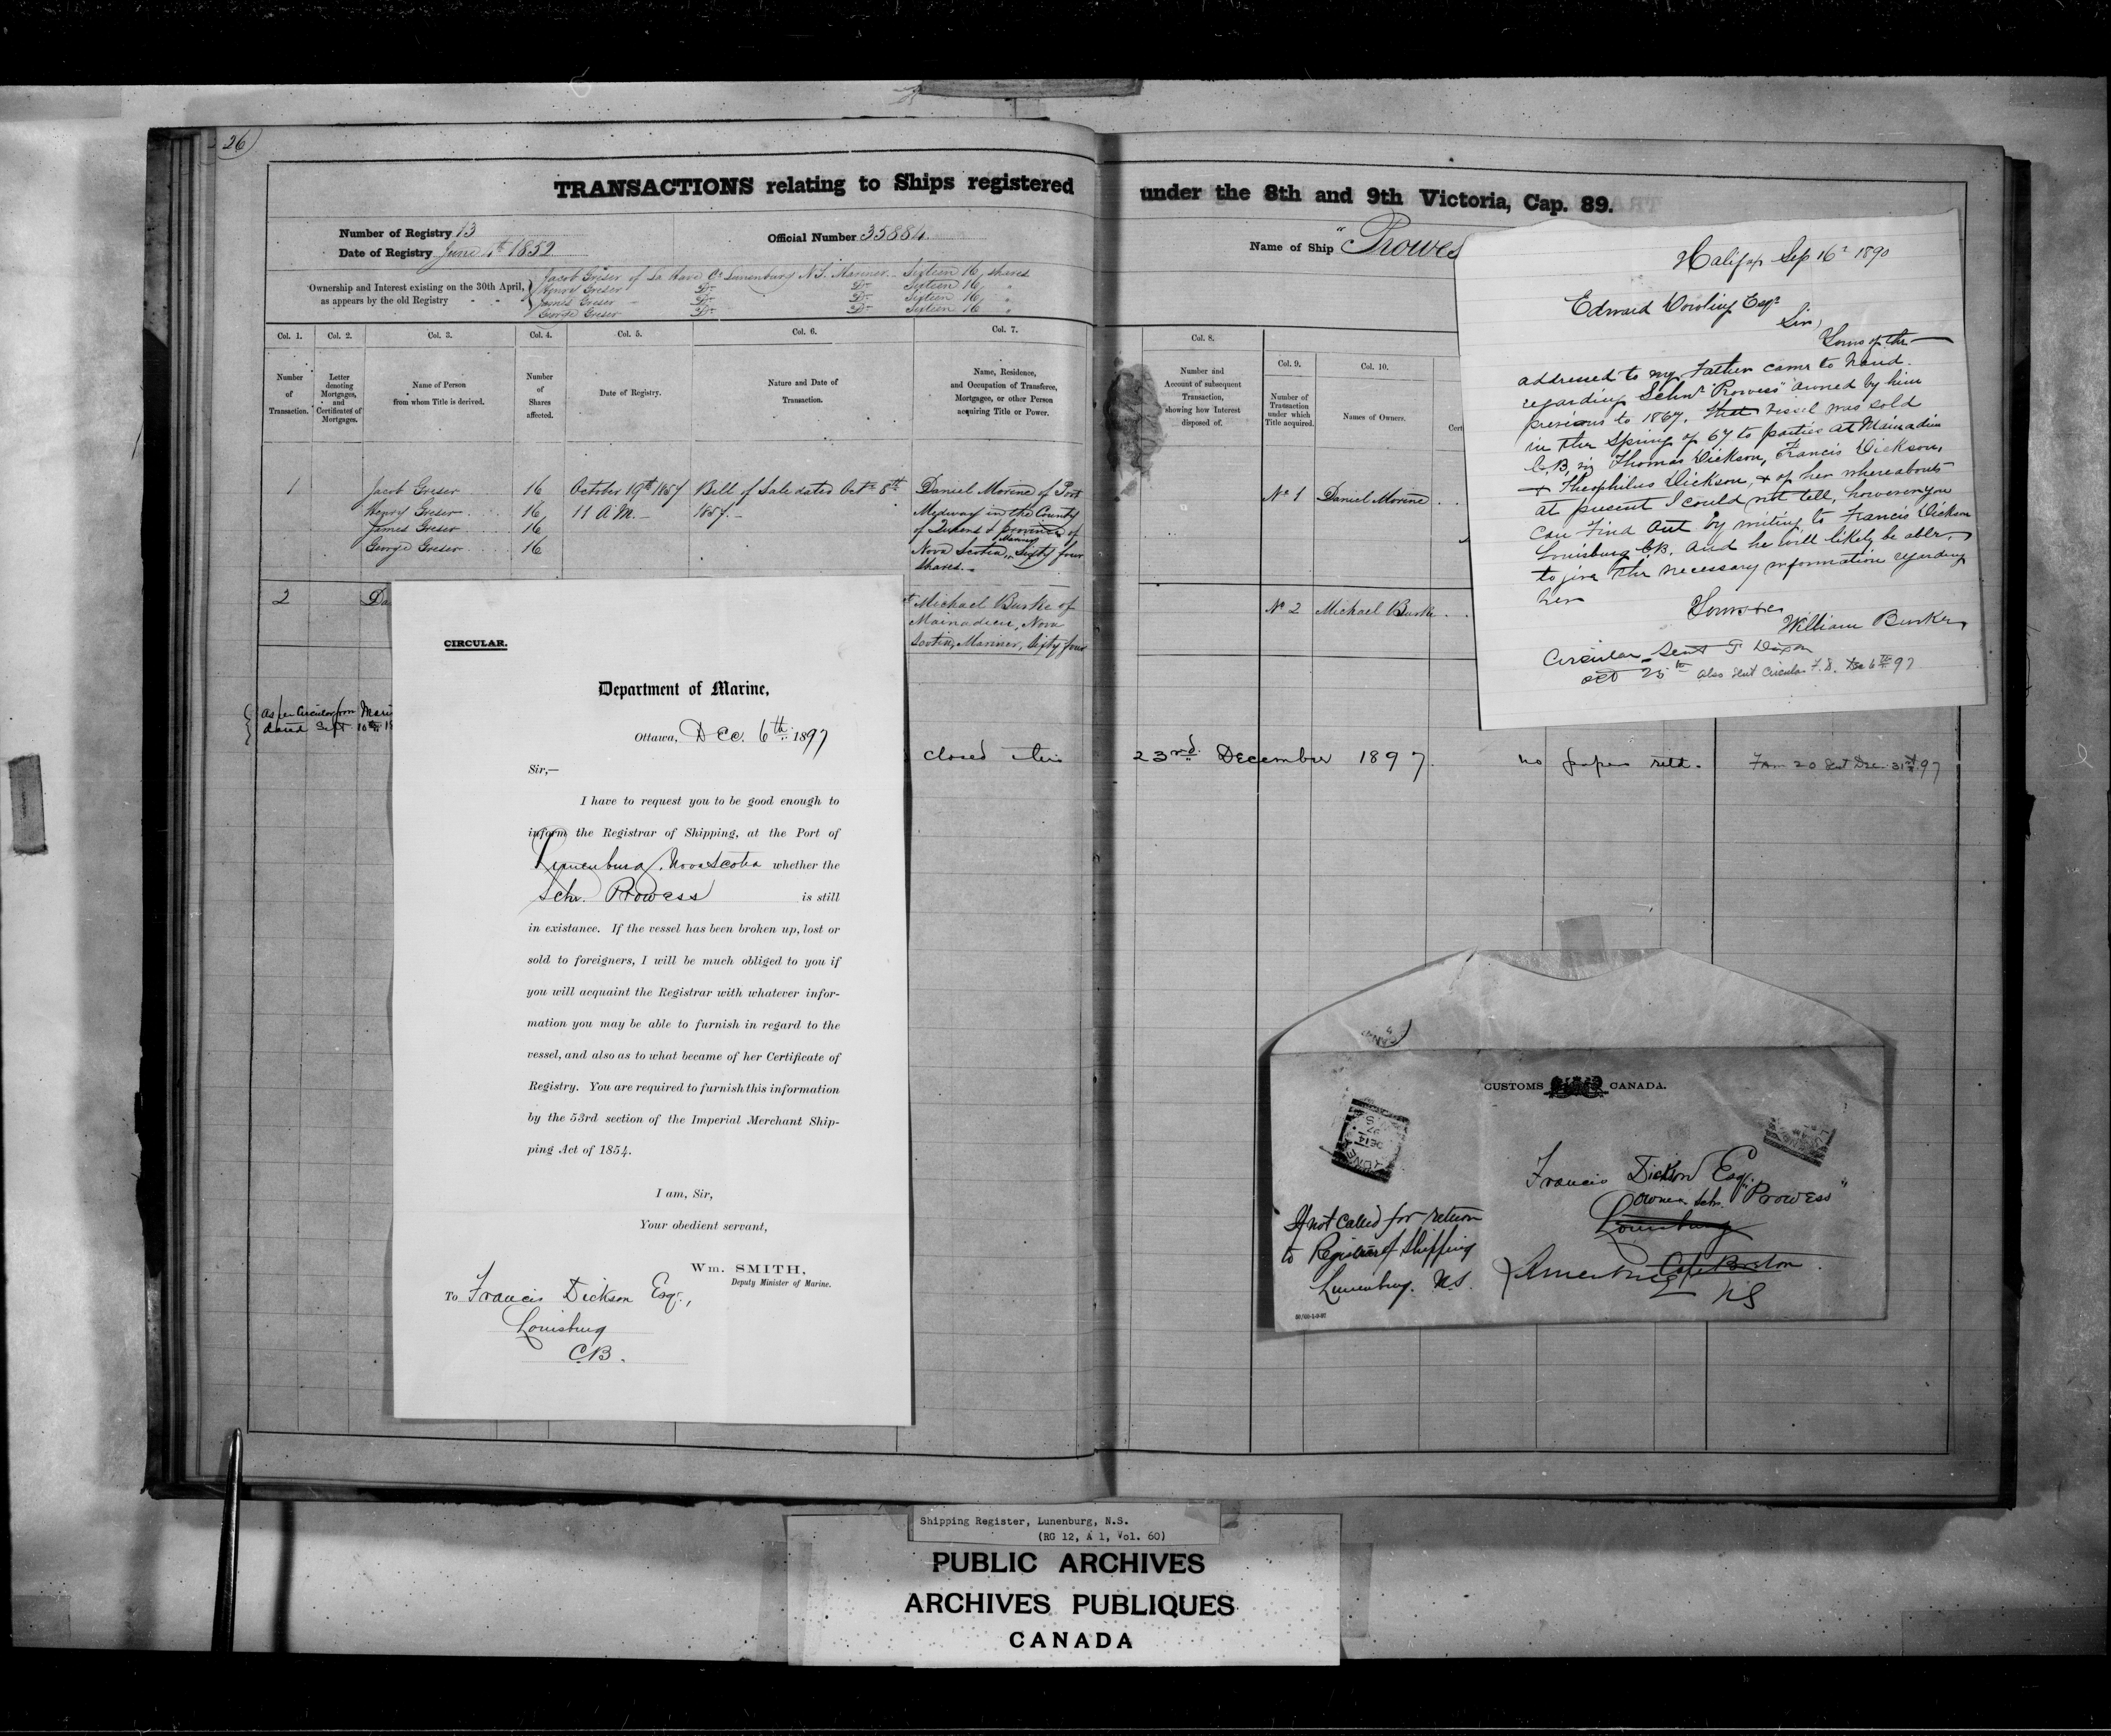 26
TRANSACTIONS relating to Ships registered under the 8th and 9th Victoria, Cap. 89.
Number of Registry 13
Date of Registry June 1852
Official Number 35884
Name of Ship "Prowes
Ownership and Interest existing on the 30th April,
as appears by the old Registry - -
Jacob Greser of La Have Co Lunenburg N.S. Mariner Sixteen 16 shares
Henry Greser Do Do Sixteen 16 "
James Greser Do Do Sixteen 16 "
George Greser Do Do Sixteen 16 "
Col. 1.
Number
of
Transaction.
Col. 2.
Letter
denoting
Mortgages,
and
Certificates of
Mortgages.
Col. 3.
Name of Person
from whom Title is derived.
Col. 4.
Number
of
Shares
affected.
Col. 5.
Date of Registry.
Col. 6.
Nature and Date of
Transaction.
Col. 7.
Name, Residence,
and Occupation of Transferee,
Mortgagee, or other Person
acquiring Title or Power.
Col. 8.
Number and
Account of subsequent
Transaction,
showing how Interest
disposed of.
Col. 9.
Number of
Transaction
under which
Title acquired.
Col. 10.
Names of Owners.
Cert
1
Jacob Greser 16
Henry Greser 16
James Greser 16
George Greser 16
October 19th 1857
11 A.M.
Bill of Sale dated Octr 8th
1857.
Daniel Morine of Port
Medway in the County
of Queens & Province of
Nova Scotia, Mariner Sixty four
shares.
No 1 Daniel Morine
2
Da
Michael Burke of
Mainadieu, Nova
Scotia, Mariner, Sixty four
No 2 Michael Burke
As per Circular from Mari
dated Sept 10th 18
closed this 23rd December 1897. no papers retd. Form 20 sent Dec. 31st 97
CIRCULAR.
Department of Marine,
Ottawa, Dec. 6th 1897
Sir,—
I have to request you to be good enough to
inform the Registrar of Shipping, at the Port of
Lunenburg, Nova Scotia whether the
Schr. Prowess is still
in existance. If the vessel has been broken up, lost or
sold to foreigners, I will be much obliged to you if
you will acquaint the Registrar with whatever infor-
mation you may be able to furnish in regard to the
vessel, and also as to what became of her Certificate of
Registry. You are required to furnish this information
by the 53rd section of the Imperial Merchant Ship-
ping Act of 1854.
I am, Sir,
Your obedient servant,
Wm. SMITH,
Deputy Minister of Marine.
To Francis Dickson Esq.,
Louisburg
C.B.
Halifax Sep 16th 1890
Edward Dowling Esqr
Sir,
Yours of the
addressed to my Father came to hand
regarding Schnr "Prowess" owned by him
previous to 1867. That vessel was sold
in the Spring of 67 to parties at Mainadieu
C.B, viz Thomas Dickson, Francis Dickson,
+ Theophilus Dickson, + of her whereabouts
at present I could not tell, however you
can find out by writing to Francis Dickson
Louisburg C.B. and he will likely be able
to give the necessary information regarding
her
Yours &c
William Burke
Circular sent F Dixon
Oct 25th also sent Circular F.D. Dec 6th 97
CUSTOMS CANADA.
DE 14
97
N.S
Francis Dickson Esq.
Owner Schr. "Prowess"
Louisburg
Cape Breton
NS
If not called for return
to Registrar of Shipping
Lunenburg. N.S.
Shipping Register, Lunenburg, N.S.
(RG 12, A 1, Vol. 60)
PUBLIC ARCHIVES
ARCHIVES PUBLIQUES
CANADA